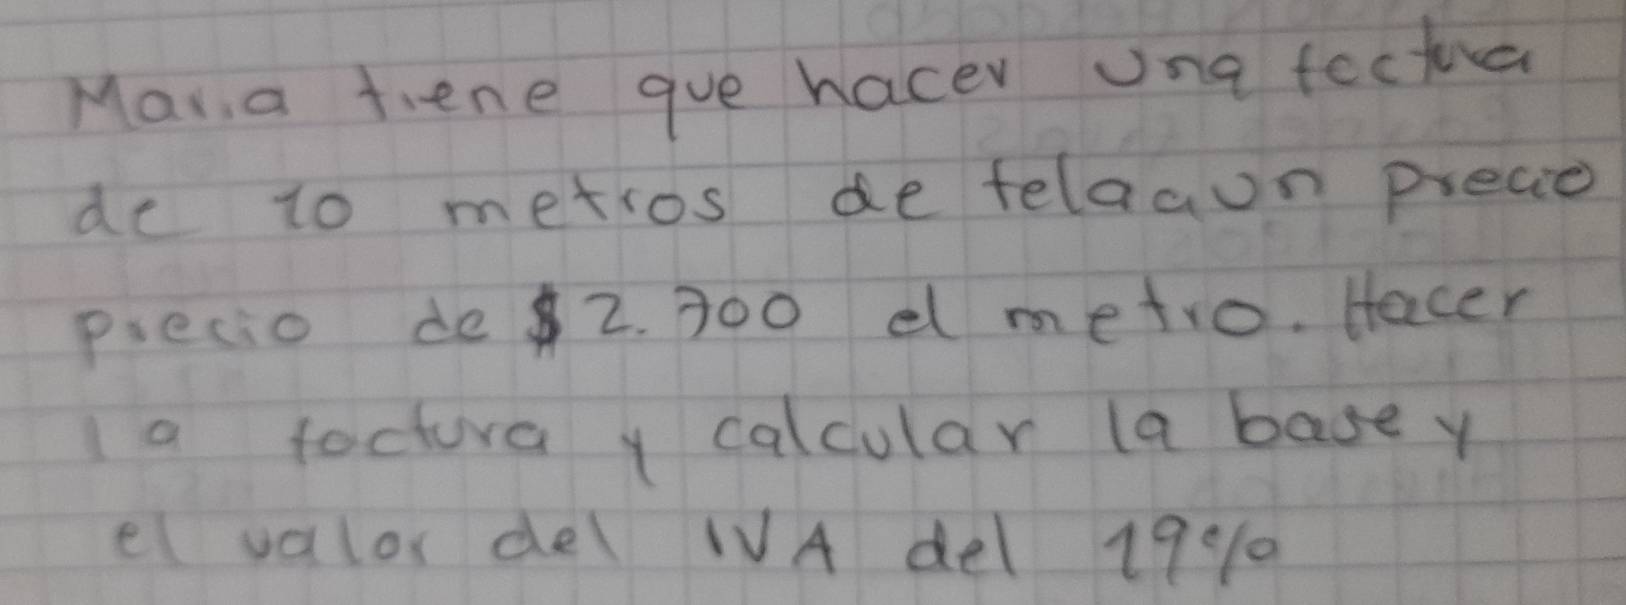 Maria tiene que hacer una factura
de 10 metros de tela a un precio
precio de $2.700 el metro. Hacer
la factura y calcular la base y
el valor del IVA del 19%